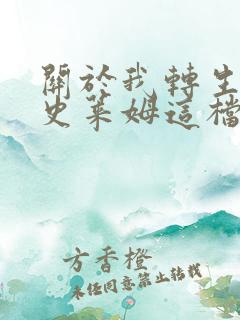 關於我轉生
史萊姆這檔
方香橙
未經同意禁止轉載